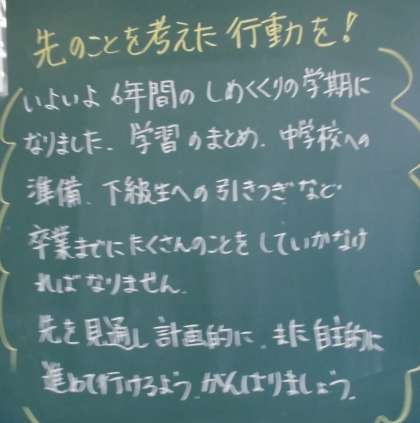 先のことを考えた行動を！
いよいよ6年間のしめくくりの学期に
なりました。学習のまとめ、中学校への
準備、下級生への引きつぎなど
卒業までにたくさんのことをしていかなけ
ればなりません。
先を見通し計画的に、また自主的に
進めて行けるよう、がんばりましょう。